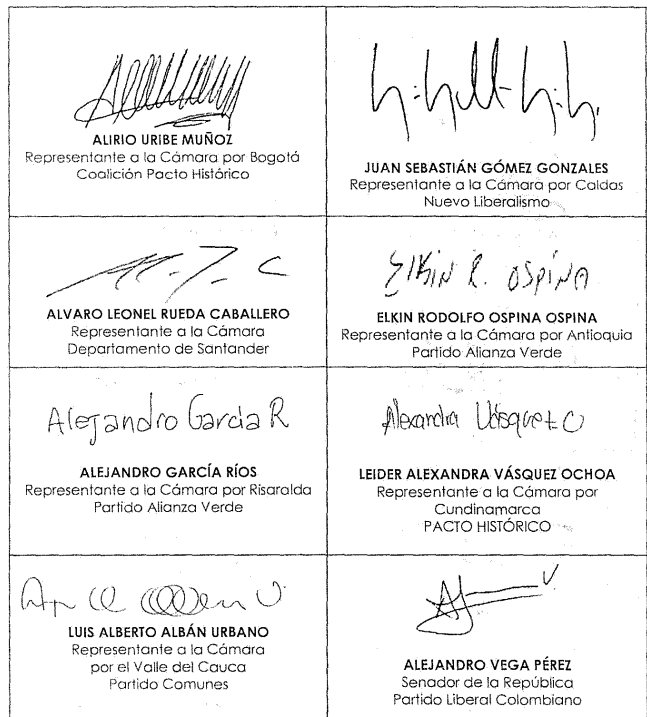 ALIRIO URIBE MUÑOZ
Representante a la Cámara por Bogotá
Coalición Pacto Histórico
JUAN SEBASTIÁN GÓMEZ GONZALES
Representante a la Cámara por Caldas
Nuevo Liberalismo
ALVARO LEONEL RUEDA CABALLERO
Representante a la Cámara
Departamento de Santander
Elkin R. OSpiNA
ELKIN RODOLFO OSPINA OSPINA
Representante a la Cámara por Antioquia
Partido Alianza Verde
Alejandro García R
ALEJANDRO GARCÍA RÍOS
Representante a la Cámara por Risaralda
Partido Alianza Verde
Alexandra Vásquez O
LEIDER ALEXANDRA VÁSQUEZ OCHOA
Representante a la Cámara por
Cundinamarca
PACTO HISTÓRICO
LUIS ALBERTO ALBÁN URBANO
Representante a la Cámara
por el Valle del Cauca
Partido Comunes
ALEJANDRO VEGA PÉREZ
Senador de la República
Partido Liberal Colombiano